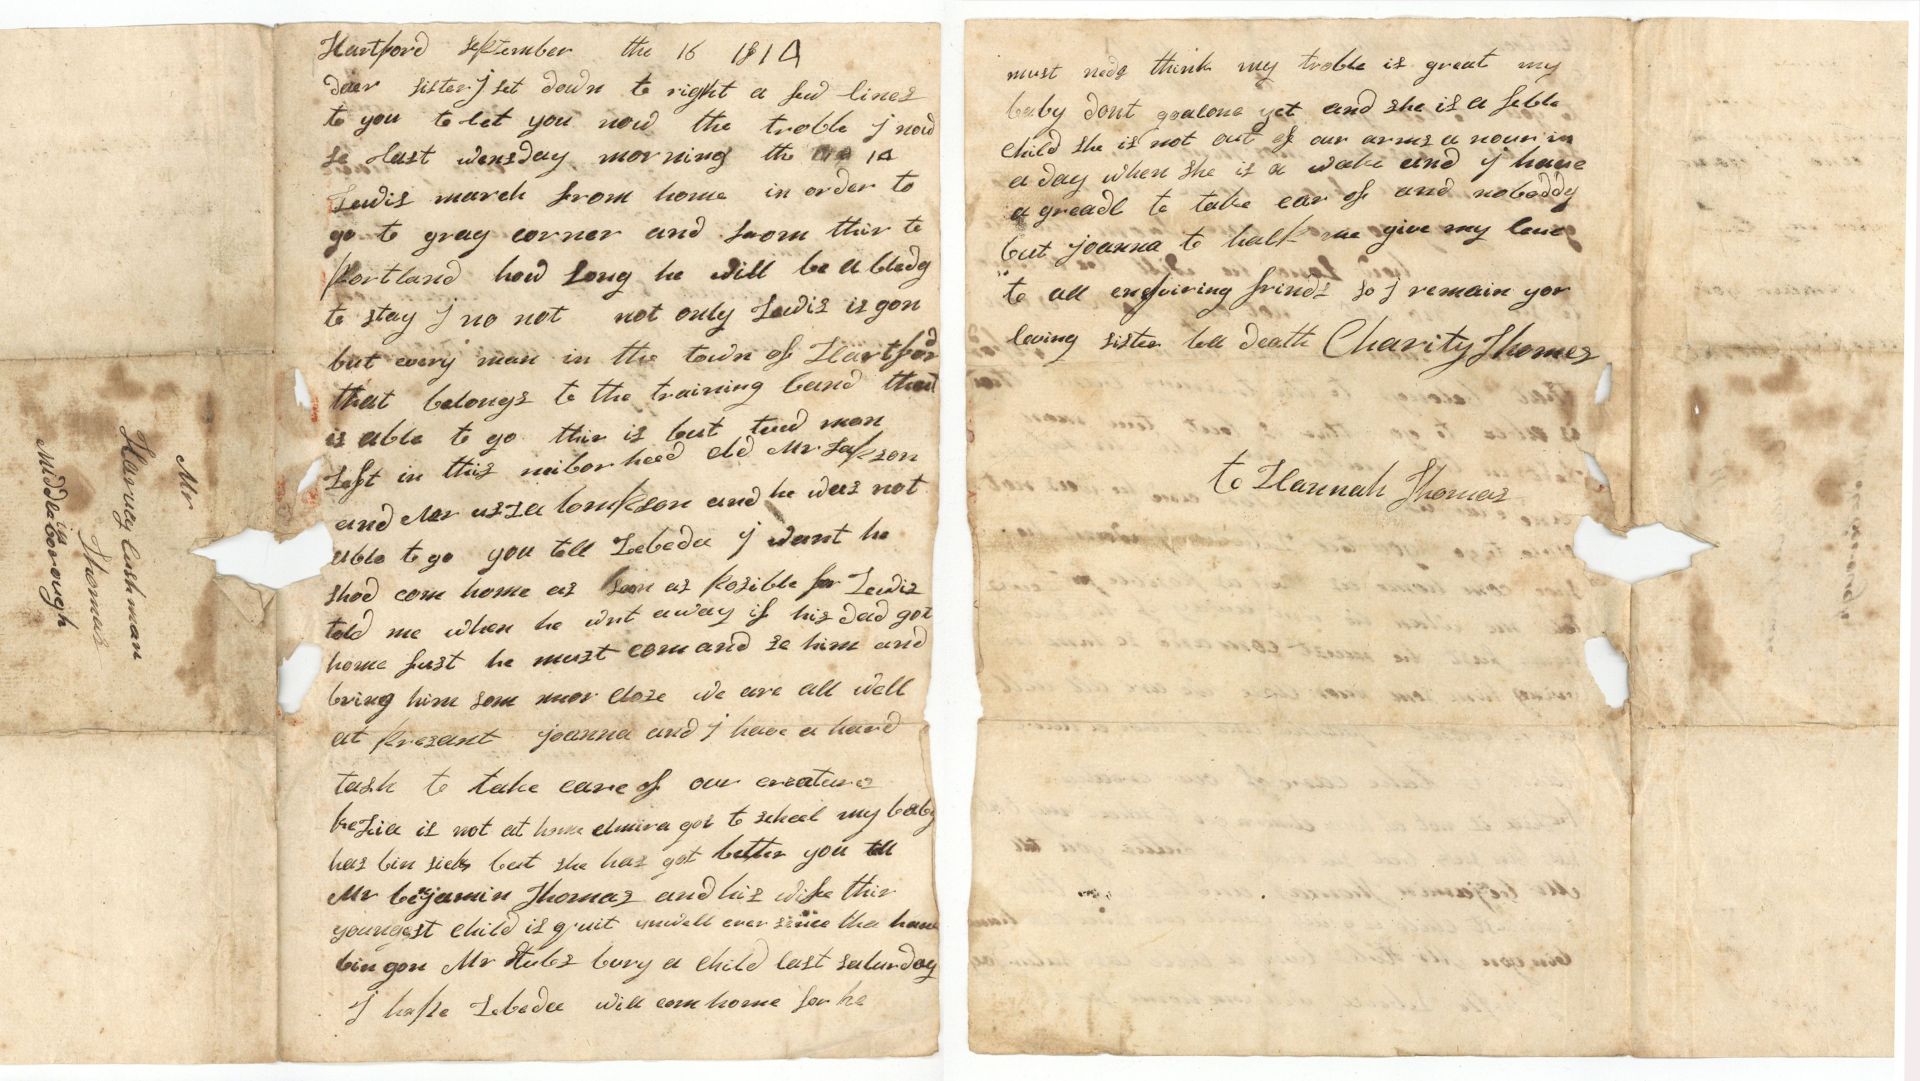 Hartford September the 16 1814
daer sister j set down to right a few lines
to you to let you now the troble j now
se Last wensday morning the 14
Lewis march from home in order to
go to gray corner and from thir to
portland how Long he will be abledg
to stay j no not not only Lewis is gon
but every man in the town of Hartford
that belongs to the training band that
is able to go thir is but tuw man
Left in this neiborheed old Mr
and Mr and he was not
able to go you tell Zebedee j want he
shod com home as soon as posible for Lewis
told me when he wnt away if his dad got
home fust he must com and se him and
bring him som mor close we are all well
at presant joanna and j have a hard
task to take care of our creatures
keZia is not at home elmira gos to scheel my baby
has bin sick but she has got better you tell
Mr benjamin Thomas and his wife thir
youngest child is quit unwell ever since tha have
bin gon Mr Stubs bury a child last saturday
j hope Zebedee will com home for he
Mr
Harvey Cushman
Thomas
in
Middleborough
must neds think my troble is great my
baby dont goalone yet and she is a feble
child she is not out of our arms a nour in
a day when she is a wake and j have
a greadl to take car of and nobeddy
but joanna to halp me give my love
to all enquiring frinds so j remain yor
loving sister tell death Charity Thomas
to Hannah Thomas